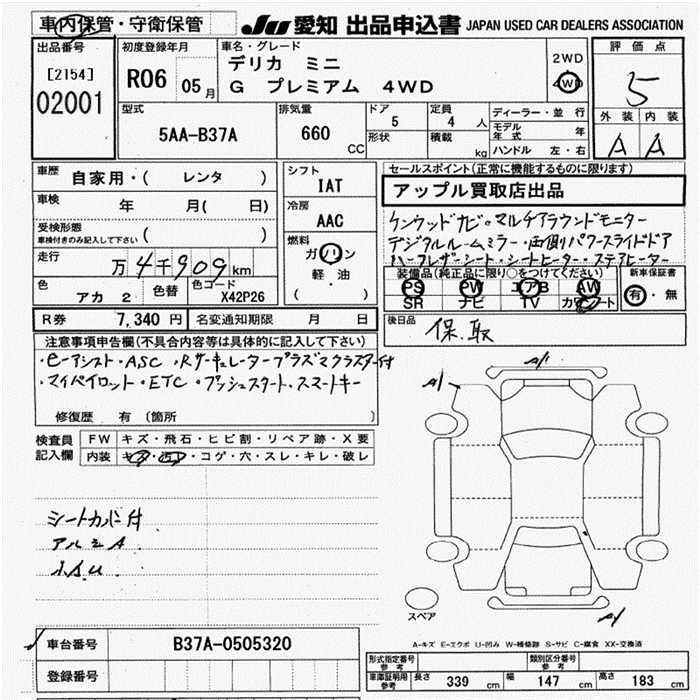 車内保管・守衛保管 JU 愛知 出品申込書 JAPAN USED CAR DEALERS ASSOCIATION
出品番号 初度登録年月 車名・グレード 評価点
[2154] R06 05月 デリカ ミニ 2WD
02001 G プレミアム 4WD 4WD 5
型式 排気量 ドア 定員 ディーラー・並 行 外装 内装
5AA-B37A 660 CC 5 4 人 モデル年式 年 A A
形状 積載 kg ハンドル 左・右
車歴 自家用・( レンタ ) シフト セールスポイント(正常に機能するものに限ります)
IAT アップル買取店出品
車検 年 月( 日) 冷房 ケンウッドナビ・マルチアラウンドモニター
受検形態 AAC デジタルルームミラー・両側パワースライドドア
車検付きのみ記入して下さい ( ) ハーフレザーシート・シートヒーター・ステアヒーター
走行 万4千909km 燃料 ガソリン 装備品(純正品に限り○をつけてください) 新車保証書
軽・油 PS PW エアB AW 有・無
色 アカ 2 色替 色コード X42P26 ( ) SR ナビ TV カワシート
R券 7,340 円 名変通知期限 月 日 後日品 保.取
注意事項申告欄(不具合内容等は具体的に記入して下さい)
・eーアシスト・ASC・Rサーキュレータープラズマクラスター付
・マイパイロット・ETC・プッシュスタート・スマートキー
修復歴 有 (箇所 )
検査員記入欄 FW キズ・飛石・ヒビ割・リペア跡・X要
内装 キズ・汚レ・コゲ・穴・スレ・キレ・破レ
A1 A1
シートカバー付
アルミA
スペア
A1
A-キズ E-エクボ U-凹み W-補修跡 S-サビ C-腐食 XX-交換済
車台番号 B37A-0505320 形式指定番号 参考 類別区分番号 参考
登録番号 車庫証明用参考 長さ 339 cm 幅 147 cm 高さ 183 cm